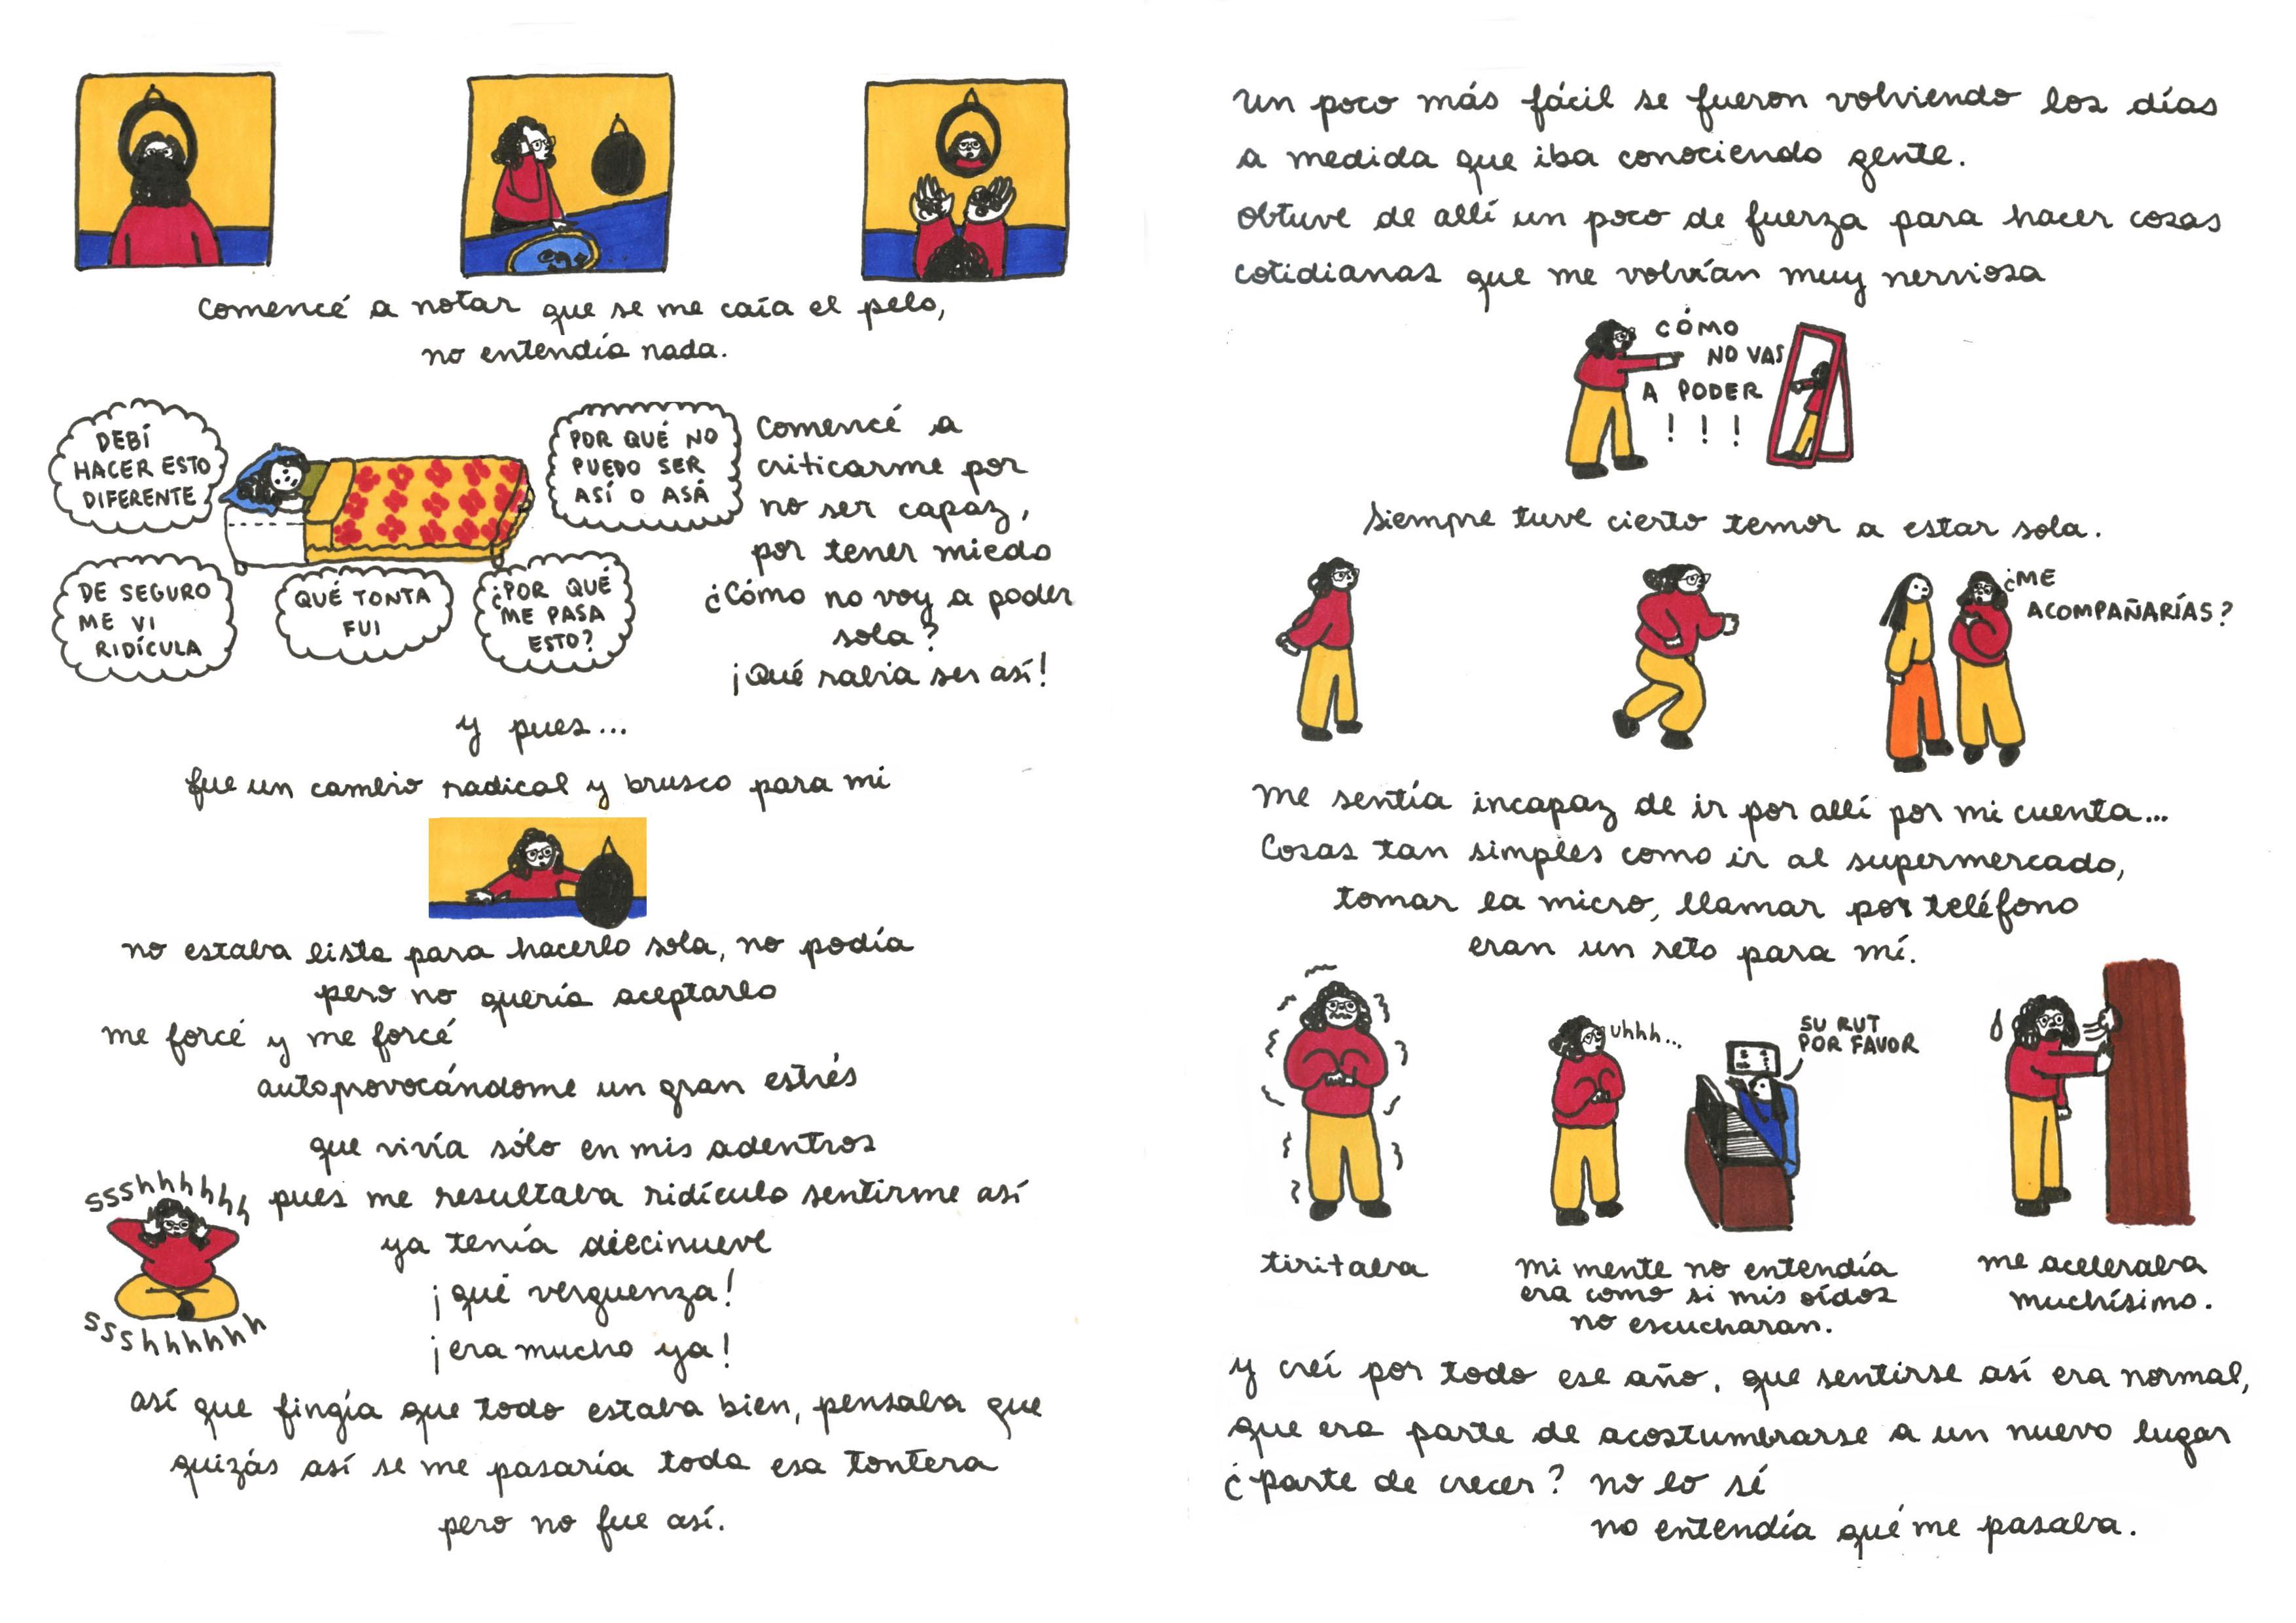 comencé a notar que se me caía el pelo,
no entendía nada.
DEBÍ
HACER ESTO
DIFERENTE
POR QUÉ NO
PUEDO SER
ASÍ O ASÁ
DE SEGURO
ME VI
RIDÍCULA
QUÉ TONTA
FUI
¿POR QUÉ
ME PASA
ESTO?
comencé a
criticarme por
no ser capaz,
por tener miedo
¿Cómo no voy a poder
sola?
¡Qué rabia ser así!
y pues...
fue un cambio radical y brusco para mi
no estaba lista para hacerlo sola, no podía
pero no quería aceptarlo
me forcé y me forcé
autoprovocándome un gran estrés
que vivía sólo en mis adentros
ssshhhhhh
pues me resultaba ridículo sentirme así
ya tenía diecinueve
¡qué verguenza!
ssshhhhhh
¡era mucho ya!
así que fingía que todo estaba bien, pensaba que
quizás así se me pasaría toda esa tontera
pero no fue así.
un poco más fácil se fueron volviendo los días
a medida que iba conociendo gente.
obtuve de allí un poco de fuerza para hacer cosas
cotidianas que me volvían muy nerviosa
CÓMO
NO VAS
A PODER
!!!
siempre tuve cierto temor a estar sola.
¿ME
ACOMPAÑARÍAS?
me sentía incapaz de ir por allí por mi cuenta...
Cosas tan simples como ir al supermercado,
tomar la micro, llamar por teléfono
eran un reto para mí.
uhhh...
SU RUT
POR FAVOR
tiritaba
mi mente no entendía
era como si mis oídos
no escucharan.
me aceleraba
muchísimo.
y creí por todo ese año, que sentirse así era normal,
que era parte de acostumbrarse a un nuevo lugar
¿parte de crecer? no lo sé
no entendía qué me pasaba.